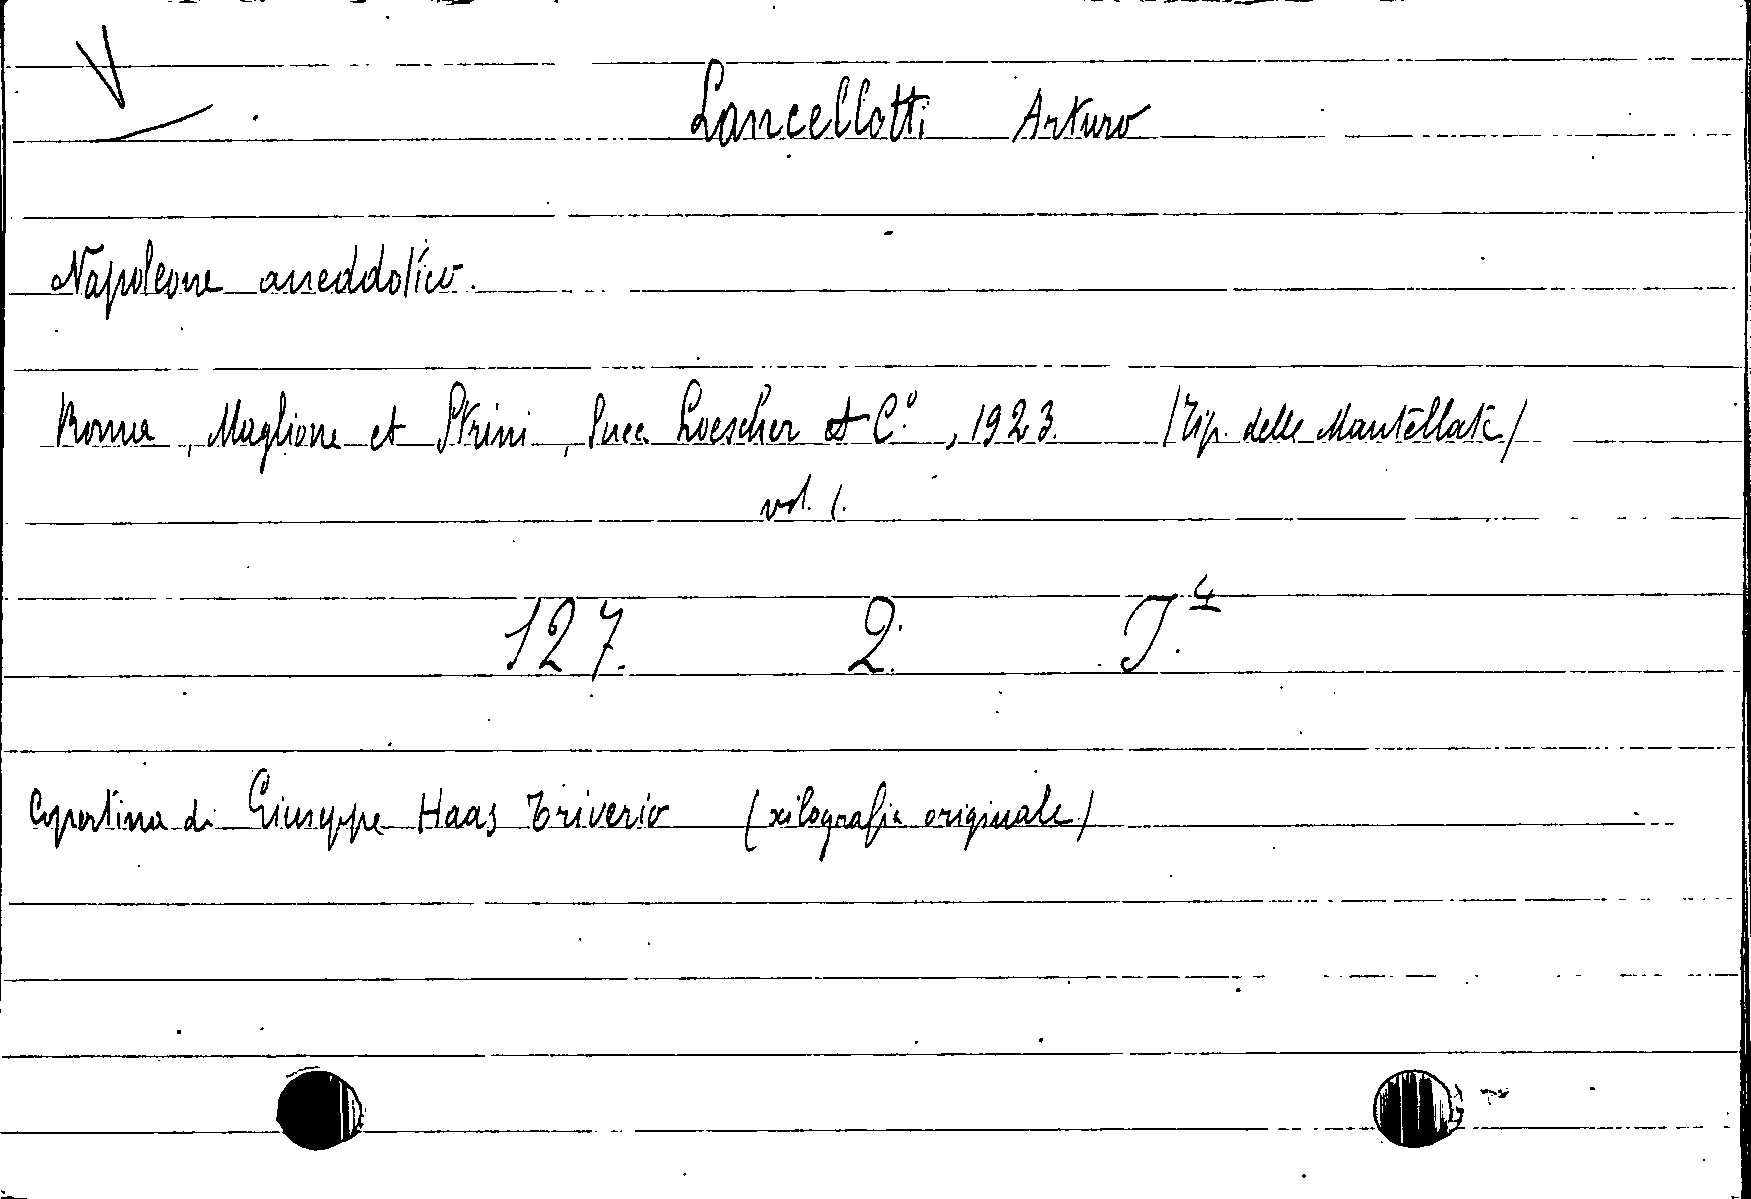 Lancellotti Arturo
Napoleone aneddotico.
Roma, Maglione et Strini, Succ. Loescher & C.º, 1923. (Tip. delle Mantellate)
vol. 1.
127. 2. J.4
Copertina di Giuseppe Haas Triverio (xilografia originale)